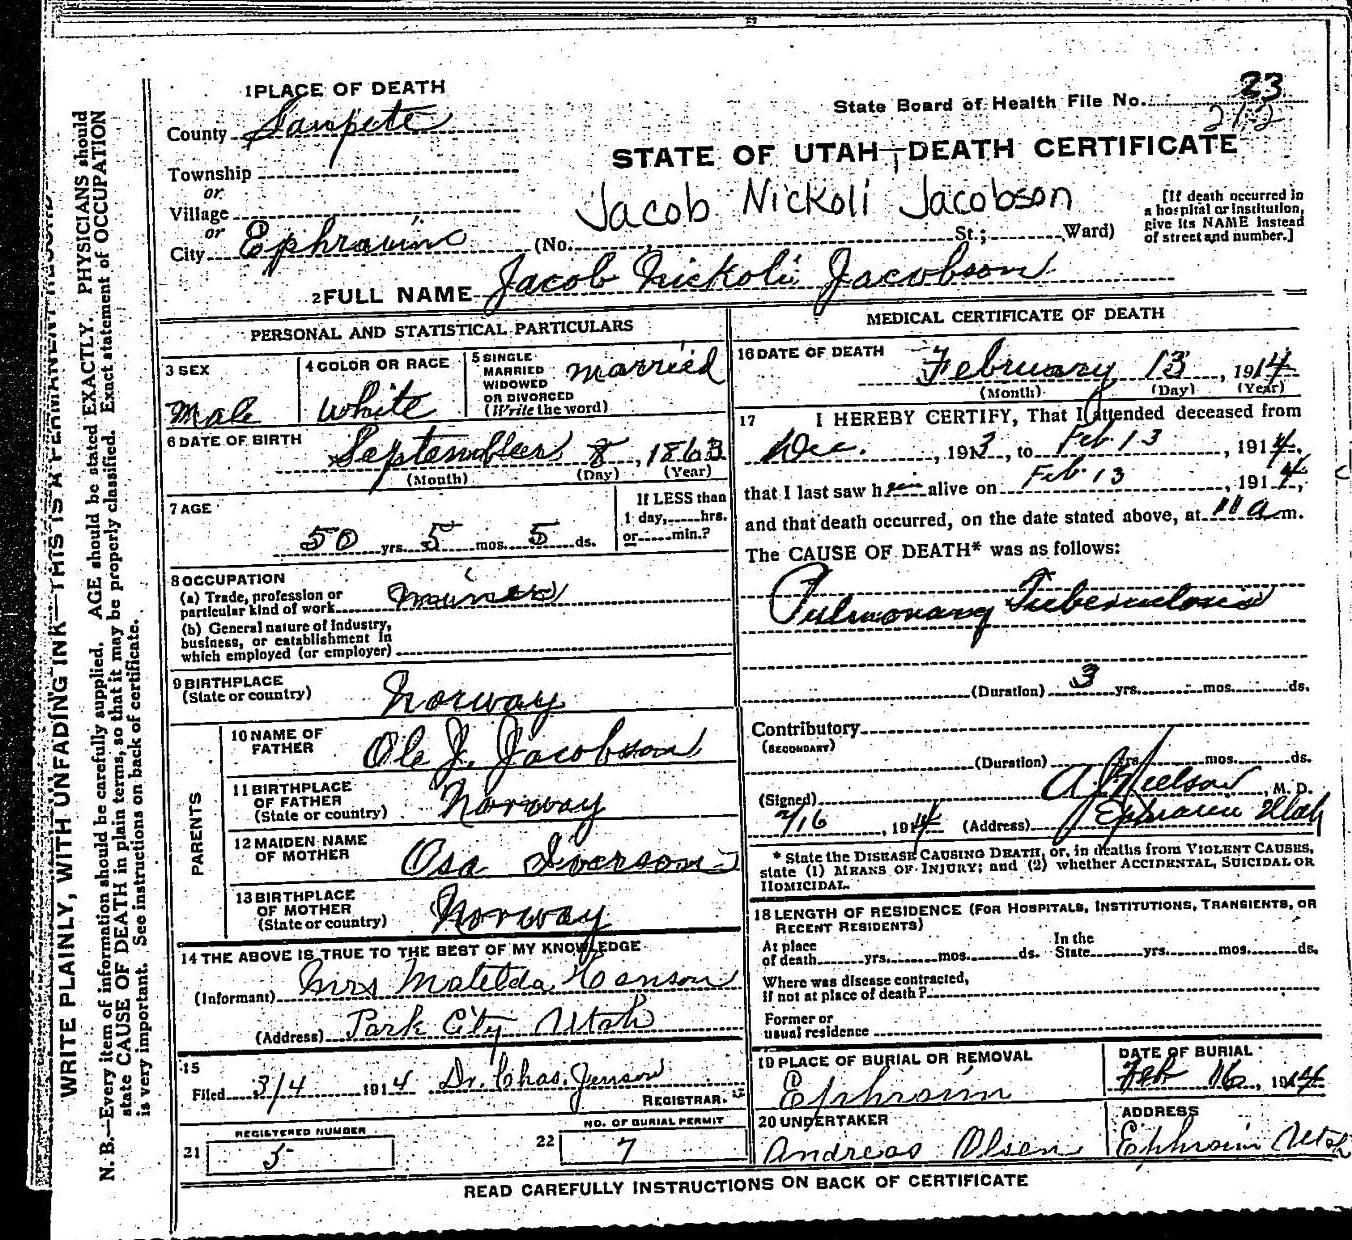 1 PLACE OF DEATH
County Sanpete
Township
or
Village
or
City Ephraim
State Board of Health File No. 23
212
STATE OF UTAH—DEATH CERTIFICATE
Jacob Nickoli Jacobson
(No. St.; Ward)
[If death occurred in
a hospital or institution,
give its NAME instead
of street and number.]
2 FULL NAME Jacob Nickoli Jacobson
PERSONAL AND STATISTICAL PARTICULARS
3 SEX
Male
4 COLOR OR RACE
White
5 SINGLE
MARRIED
WIDOWED
OR DIVORCED
(Write the word)
Married
6 DATE OF BIRTH
September 8, 1863
(Month) (Day) (Year)
7 AGE
50 yrs. 5 mos. 5 ds.
If LESS than
1 day, hrs.
or min.?
8 OCCUPATION
(a) Trade, profession or
particular kind of work miner
(b) General nature of industry,
business, or establishment in
which employed (or employer)
9 BIRTHPLACE
(State or country) Norway
PARENTS
10 NAME OF
FATHER Ole J. Jacobson
11 BIRTHPLACE
OF FATHER
(State or country) Norway
12 MAIDEN NAME
OF MOTHER Osa Iverson
13 BIRTHPLACE
OF MOTHER
(State or country) Norway
14 THE ABOVE IS TRUE TO THE BEST OF MY KNOWLEDGE
(Informant) Mrs Matelda Hanson
(Address) Park City Utah
15
Filed 3/4 1914 Dr. Chas. Jenson
REGISTRAR.
21 REGISTERED NUMBER
5
22 NO. OF BURIAL PERMIT
7
MEDICAL CERTIFICATE OF DEATH
16 DATE OF DEATH
February 13, 1914
(Month) (Day) (Year)
17 I HEREBY CERTIFY, That I attended deceased from
Dec. , 1913, to Feb 13 , 1914,
that I last saw him alive on Feb 13 , 1914,
and that death occurred, on the date stated above, at 11 a m.
The CAUSE OF DEATH* was as follows:
Pulmonary Tuberculosis
(Duration) 3 yrs. mos. ds.
Contributory
(SECONDARY)
(Duration) yrs. mos. ds.
(Signed) A J Nielson, M. D.
2/16 , 1914 (Address) Ephraim Utah
* State the DISEASE CAUSING DEATH, or, in deaths from VIOLENT CAUSES,
state (1) MEANS OF INJURY; and (2) whether ACCIDENTAL, SUICIDAL OR
HOMICIDAL.
18 LENGTH OF RESIDENCE (FOR HOSPITALS, INSTITUTIONS, TRANSIENTS, OR
RECENT RESIDENTS)
At place
of death yrs. mos. ds.
In the
State yrs. mos. ds.
Where was disease contracted,
if not at place of death?
Former or
usual residence
19 PLACE OF BURIAL OR REMOVAL
Ephraim
DATE OF BURIAL
Feb 16, 1914
20 UNDERTAKER
Andreas Olsen
ADDRESS
Ephraim Utah
READ CAREFULLY INSTRUCTIONS ON BACK OF CERTIFICATE
WRITE PLAINLY, WITH UNFADING INK—THIS IS A PERMANENT RECORD
N. B.—Every item of information should be carefully supplied. AGE should be stated EXACTLY. PHYSICIANS should
state CAUSE OF DEATH in plain terms, so that it may be properly classified. Exact statement of OCCUPATION
is very important. See instructions on back of certificate.